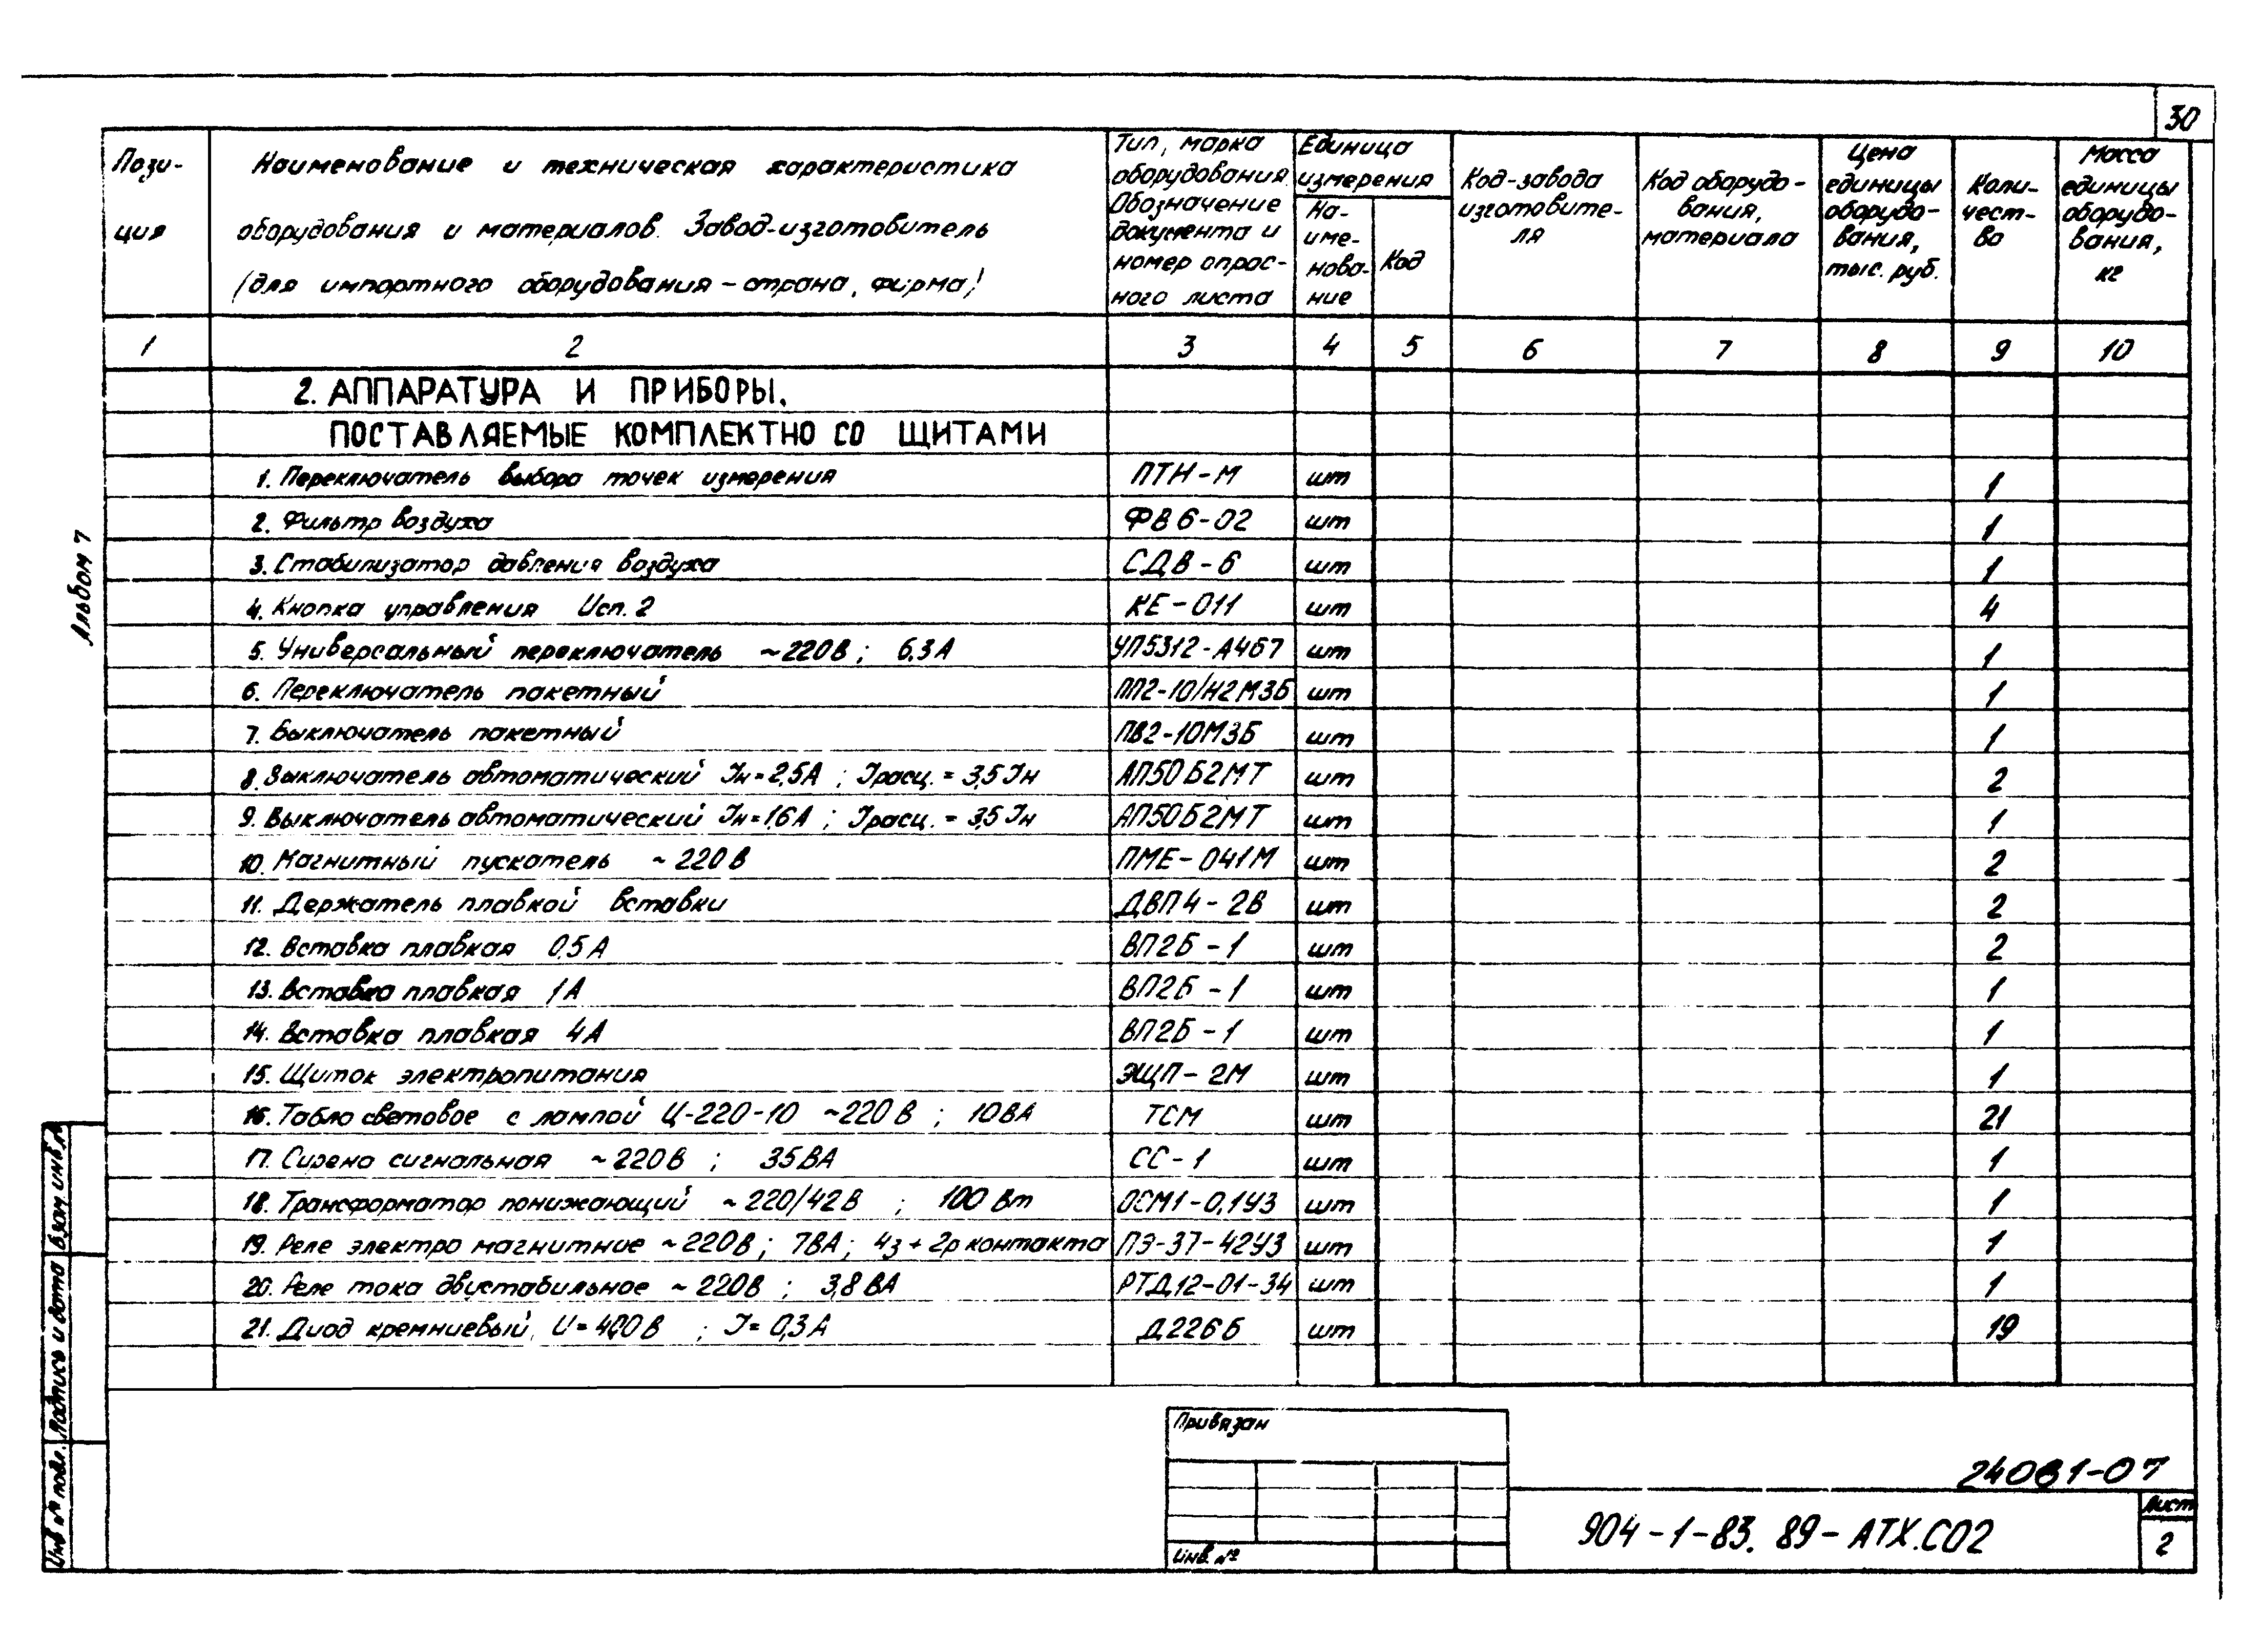 30
Пози-
ция
Наименование и техническая характеристика
оборудования и материалов. Завод-изготовитель
(для импортного оборудования – страна, фирма)
Тип, марка
оборудования.
Обозначение
документа и
номер опрос-
ного листа
Единица
измерения
На-
име-
нова-
ние
Код
Код-завода
изготовите-
ля
Код оборудо-
вания,
материала
Цена
единицы
оборудо-
вания,
тыс. руб.
Коли-
чест-
во
Масса
единицы
оборудо-
вания,
кг
1 2 3 4 5 6 7 8 9 10
2. АППАРАТУРА И ПРИБОРЫ,
ПОСТАВЛЯЕМЫЕ КОМПЛЕКТНО СО ЩИТАМИ
1. Переключатель выбора точек измерения ПТИ-М шт 1
2. Фильтр воздуха ФВ6-02 шт 1
3. Стабилизатор давления воздуха СДВ-6 шт 1
4. Кнопка управления Исп. 2 КЕ-011 шт 4
5. Универсальный переключатель ~220В; 6,3А УП5312-А467 шт 1
6. Переключатель пакетный ПП2-10/Н2М3Б шт 1
7. Выключатель пакетный ПВ2-10М3Б шт 1
8. Выключатель автоматический Iн=2,5А; Iрасц.=3,5Iн АП50Б2МТ шт 2
9. Выключатель автоматический Iн=1,6А; Iрасц.=3,5Iн АП50Б2МТ шт 1
10. Магнитный пускатель ~220В ПМЕ-041М шт 2
11. Держатель плавкой вставки ДВП4-2В шт 2
12. Вставка плавкая 0,5А ВП2Б-1 шт 2
13. Вставка плавкая 1А ВП2Б-1 шт 1
14. Вставка плавкая 4А ВП2Б-1 шт 1
15. Щиток электропитания ЭЩП-2М шт 1
16. Табло световое с лампой Ц-220-10 ~220В; 10ВА ТСМ шт 21
17. Сирена сигнальная ~220В; 35ВА СС-1 шт 1
18. Трансформатор понижающий ~220/42В; 100Вт ОСМ1-0,1У3 шт 1
19. Реле электро магнитное ~220В; 7ВА; 4з+2р контакта ПЭ-37-42У3 шт 1
20. Реле тока двустабильное ~220В; 3,8ВА РТД12-01-34 шт 1
21. Диод кремниевый, U=400В; I=0,3А Д226Б шт 19
Альбом 7
Взам. инв. №
Подпись и дата
Инв № подл.
Привязан
Инв. №
24081-07
904-1-83.89-АТХ.СО2
Лист
2